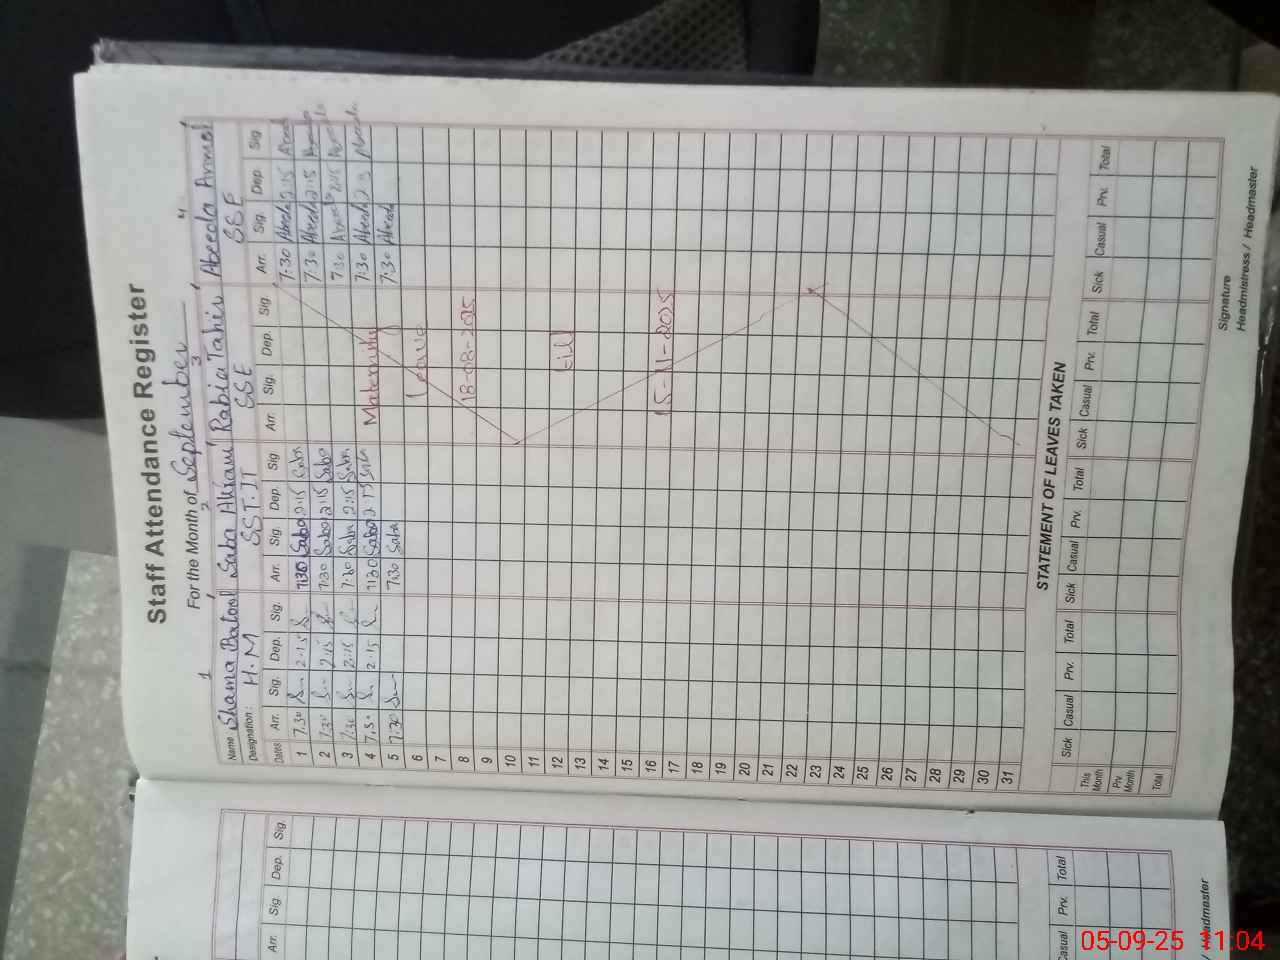 Staff Attendance Register
For the Month of September
1 2 3 4
Name : Shama Batool Saba Akram Rabia Tahir Abeeda Anmol
Designation : H.M SST.IT SSE SSE
Dates Arr. Sig. Dep. Sig. Arr. Sig. Dep. Sig Arr. Sig. Dep. Sig. Arr. Sig. Dep. Sig
1 7.30 2.15 7:30 Saba 2:15 Saba 7:30 Abeeda 2:15
2 7:30 2:15 7:30 Saba 2:15 Saba 7:30 Abeeda 2:15
3 7:30 2:15 7:30 Saba 2:15 Saba 7:30 Abeeda 2:15
4 7.30 2.15 7:30 Saba 2:15 Saba Maternity 7:30 Abeeda Abeeda
5 7:30 7:30 Saba 7:30 Abeeda
6 Leave
7
8 18-08-2025
9
10
11
12 till
13
14
15
16 15-11-2025
17
18
19
20
21
22
23
24
25
26
27
28
29
30
31
STATEMENT OF LEAVES TAKEN
Sick Casual Prv. Total Sick Casual Prv. Total Sick Casual Prv. Total Sick Casual Prv. Total
This Month
Prv. Month
Total
Signature
Headmistress / Headmaster
Arr. Sig Dep. Sig.
Casual Prv. Total
/ Headmaster
05-09-25 11:04